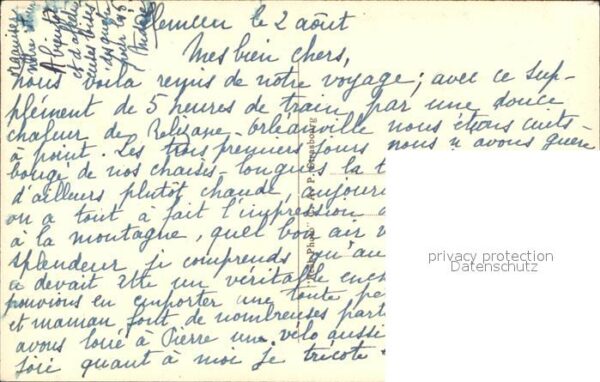 Tlemcen le 2 août
Mes bien chers,
nous voila remis de notre voyage; avec ce sup-
plément de 5 heures de train par une douce
chaleur de Relizane-Orléanville nous étions cuits
à point. Les trois premiers jours nous n'avons guère
bougé de nos chaises-longues la t
d'ailleurs plutôt chaude, aujourd
on a tout à fait l'impression
à la montagne, quel bon air
splendeur je comprends qu'au
ce devait être un véritable enc
pouvions en emporter une toute pe
et maman font de nombreuses part
avons loué à Pierre une vélo aussi
joie quant à moi je tricote
A bientôt
privacy protection
Datenschutz